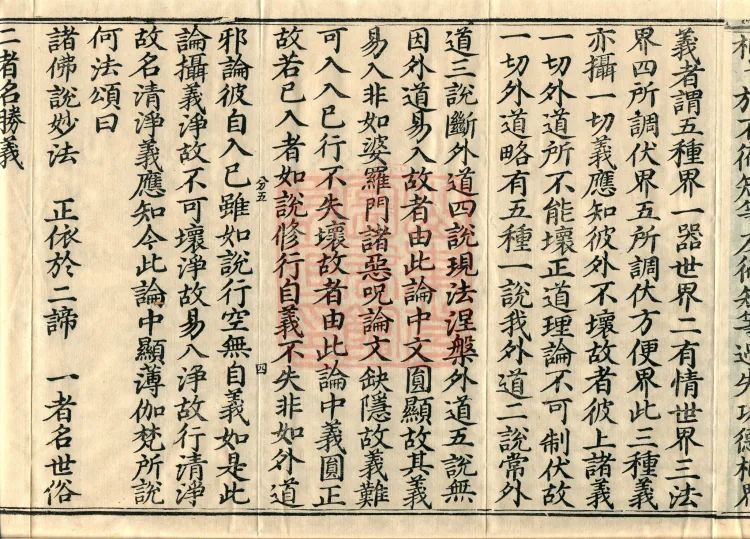 義者謂五種界一器世界二有情世界三法
界四所調伏界五所調伏方便界此三種義
亦攝一切義應知彼外不壞故者彼上諸義
一切外道所不能壞正道理論不可制伏故
一切外道略有五種一說我外道二說常外
道三說斷外道四說現法涅槃外道五說無
因外道易入故者由此論中文圓顯故其義
易入非如婆羅門諸惡呪論文缺隱故義難
可入入已行不失壞故者由此論中義圓正
故若已入者如說修行自義不失非如外道
分五
四
邪論彼自入已雖如說行空無自義如是此
論攝義淨故不可壞淨故易入淨故行清淨
故名清淨義應知今此論中顯薄伽梵所說
何法頌曰
諸佛說妙法 正依於二諦 一者名世俗
二者名勝義